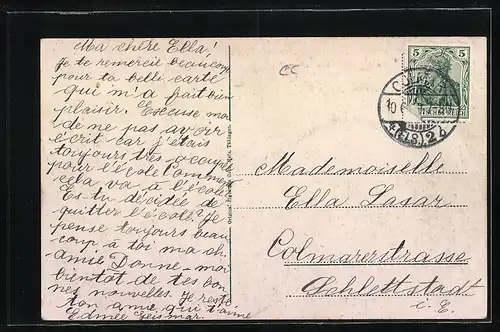 Ma chère Ella!
Je te remercie beaucoup
pour ta belle carte
qui m'a fait bien
plaisir. Excuse moi
de ne pas avoir
écrit car j'étais
toujours très occupé
pour l'école. Comment
cela va à l'école?
Es-tu décidée de
quitter l'école? Je
pense toujours beau-
coup à toi ma ch.
amie. Donne-moi
bientôt de tes bon-
nes nouvelles. Je reste
ton amie qui t'aime
Edmée Geismar.
5 5
(ELS.) 2 b
Mademoiselle
Ella Lasar
Colmarerstrasse
Schlettstadt
i. E.